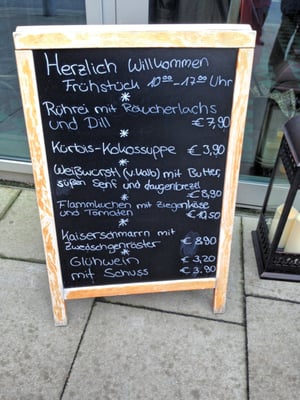 Herzlich Willkommen
Frühstück 10⁰⁰-17⁰⁰ Uhr
*
Rührei mit Räucherlachs
und Dill € 7,90
*
Kürbis-Kokossuppe € 3,90
*
Weißwurstl (v. Kalb) mit Butter,
süßen Senf und Laugenbrezel
* € 5,90
Flammkuchen mit Ziegenkäse
und Tomaten € 10,50
*
Kaiserschmarrn mit
Zwetschgenröster € 8,90
*
Glühwein € 3,20
mit Schuss € 3,90